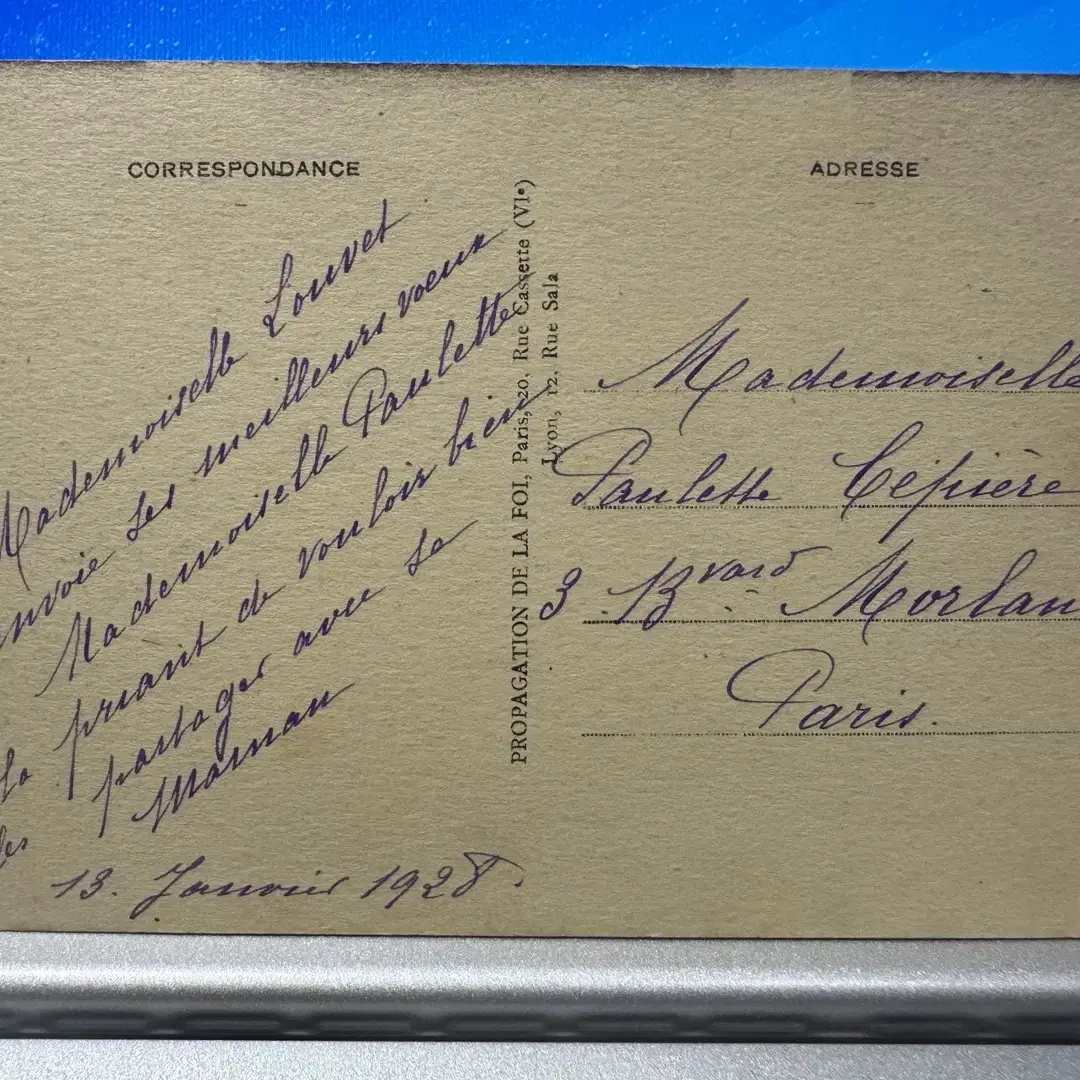 CORRESPONDANCE
Mademoiselle Louvet
envoie ses meilleurs voeux
Mademoiselle Paulette
la priant de vouloir bien
les partager avec sa
Maman
13. Janvier 1928.
PROPAGATION DE LA FOI, Paris, 20, Rue Cassette (VIe)
Lyon, 12, Rue Sala
ADRESSE
Mademoiselle
Paulette Cépière
3 Bvard Morlan
Paris.